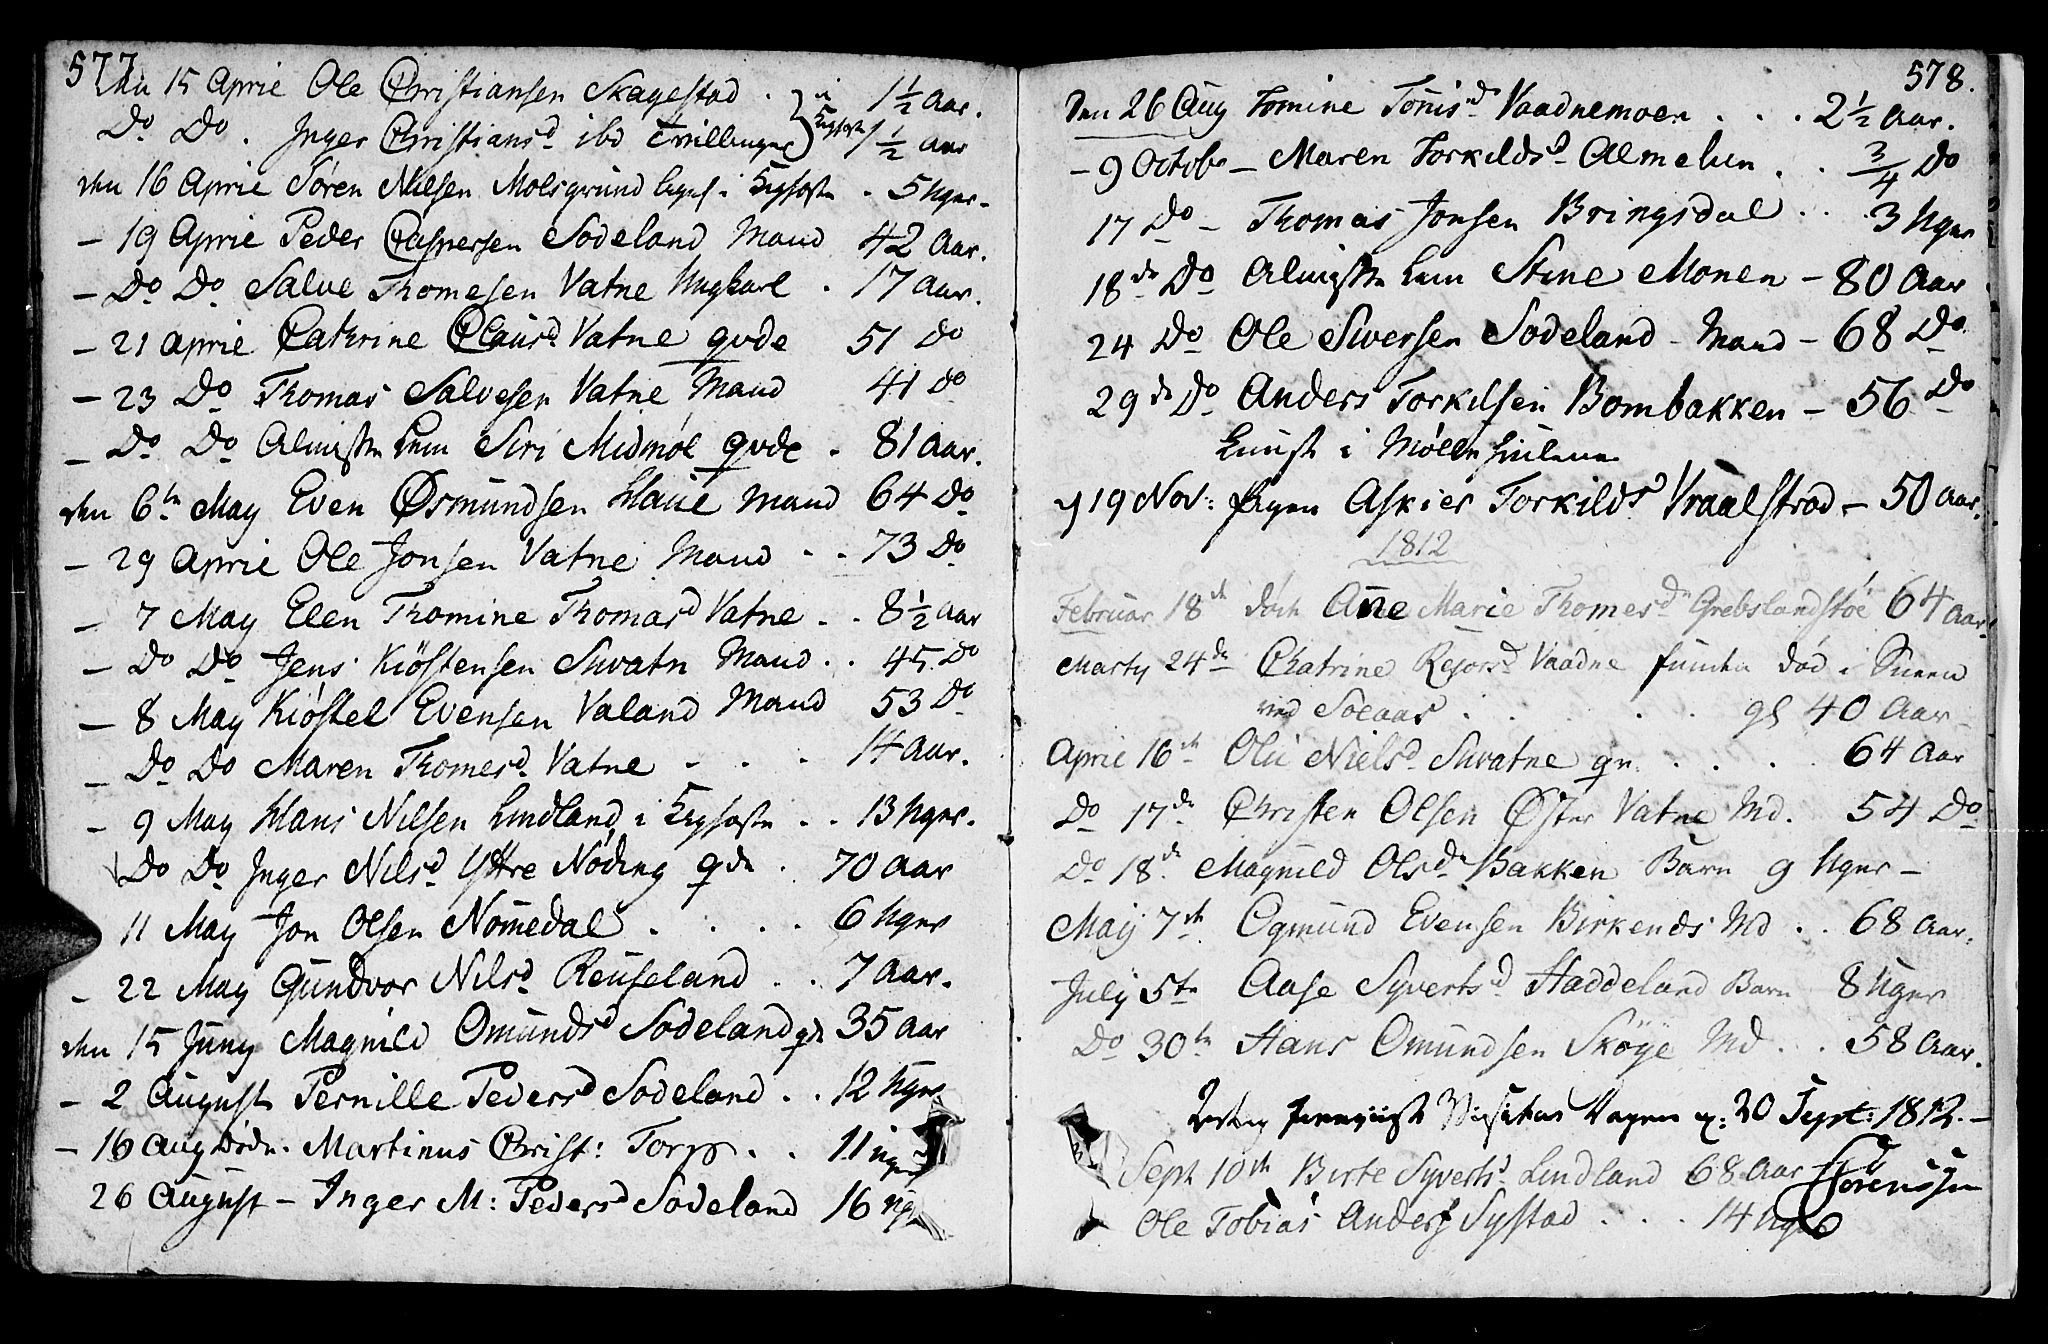 577
den 15 Aprie Ole Christiansen Skagestad . i 1½ Aar.
Do Do . Inger Christiansd ibd Tvillinger 1½ aar
den 16 Aprie Søren Nielsen Molsgrund i 5 Uger.
- 19 Aprie Peder Caspersen Sodeland Mand 42 Aar.
- Do Do Salve Thomesen Vatne Ungkarl . 17 aar.
- 21 aprie Cathrine Clausd Vatne qvde 51 do
- 23 Do Thomas Salvesen Vatne Mand 41 do
- Do Do Almisse Lem Siri Midmøl qvde . 81 aar.
den 6te May Even Øsmundsen Haue Mand 64 Do
- 29 Aprie Ole Jonsen Vatne Mand . . 73 Do
- 7 May Elen Thomine Thomasd Vatne . . 8½ aar
- Do Do Jens Kiøstensen Svatn Mand . . 45 Do
- 8 May Kiøstel Evensen Valand Mand 53 Do
- Do Do Maren Thomesd Vatne . . . 14 aar.
- 9 May Hans Nilsen Lindland i . . 13 Uger.
Do Do Inger Nilsd Yttre Nøding qde . 70 aar
11 May Jon Olsen Nomedal . . . . 6 Uger
- 22 May Gundvor Nilsd Reuseland . . 7 Aar.
den 15 Juny Magnild Omundsd Sodeland qde 35 aar
- 2 August Pernille Pedersd Sodeland . . 12 Uger
- 16 Aug døde. Martinus Christ: Torp . . 11 uger
26 August - Inger M: Pedersd Sodeland 16
578.
Den 26 Aug Tomine Tønisd Vaadnemoen . . . 2½ Aar.
- 9 Octobr - Maren Torkildsd Almelien . . ¾ Do
17 Do - Thomas Jonsen Bringsdal . . . 3 Uger
18de Do Almisse Lem Stine Monen - 80 Aar
24 Do Ole Siversen Sodeland - Mand - 68 Do
29de Do Anders Torkilsen Bombakken - 56 Do
i Møllehiulene
19 Nov: Pigen Askier Torkildsd Vraalstad - 50 Aar.
1812
Februar 18de døde Ane Marie Thomesd Grebslandstøe 64 aar.
Marty 24de Chatrine Rejersd Vaadne funden død i Sneen
ved Solaas . . . . . gl 40 Aar
Aprie 16de Olu Nielsd Svatne qn . . . . 64 Aar
Do 17de Christen Olsen Øster Vatne Md. 54 Do
Do 18de Magnild Olsd Bakken Barn 9 Uger -
Maij 7de Ogmund Evensen Birkenes Md . . 68 Aar.
July 5te Aase Syvertsd Haddeland Barn 8 Uger
Do 30te Hans Omundsen Skøye Md . . 58 Aar.
Visitas Dagen d: 20 Sept: 1812. -
Sept 10de Birte Syvertsd Lindland 68 aar Sørenssen
Ole Tobias Anders Systad . . . 14 Uger